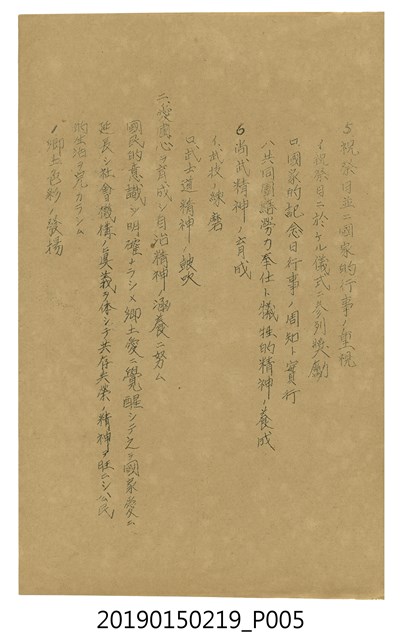 5 祝祭日並ニ國家的行事ノ重視
イ 祝祭日ニ於ケル儀式ニ参列奬勵
ロ 國家的記念日行事ノ周知ト實行
ハ 共同團體勞力奉仕ト犠牲的精神ノ養成
6 尚武精神ノ育成
イ 武技ノ錬磨
ロ 武士道精神ノ鼓吹
二、愛國心ヲ育成シ自治精神ノ涵養ニ努ム
國民的意識ヲ明確ナラシメ郷土愛ニ覺醒シテ之ヲ國家愛ニ
延長シ社會機構ノ眞義ヲ体シテ共存共榮ノ精神ヲ旺ニシ公民
的生活ヲ完カラシム
1 郷土色彩ノ發揚
20190150219_P005